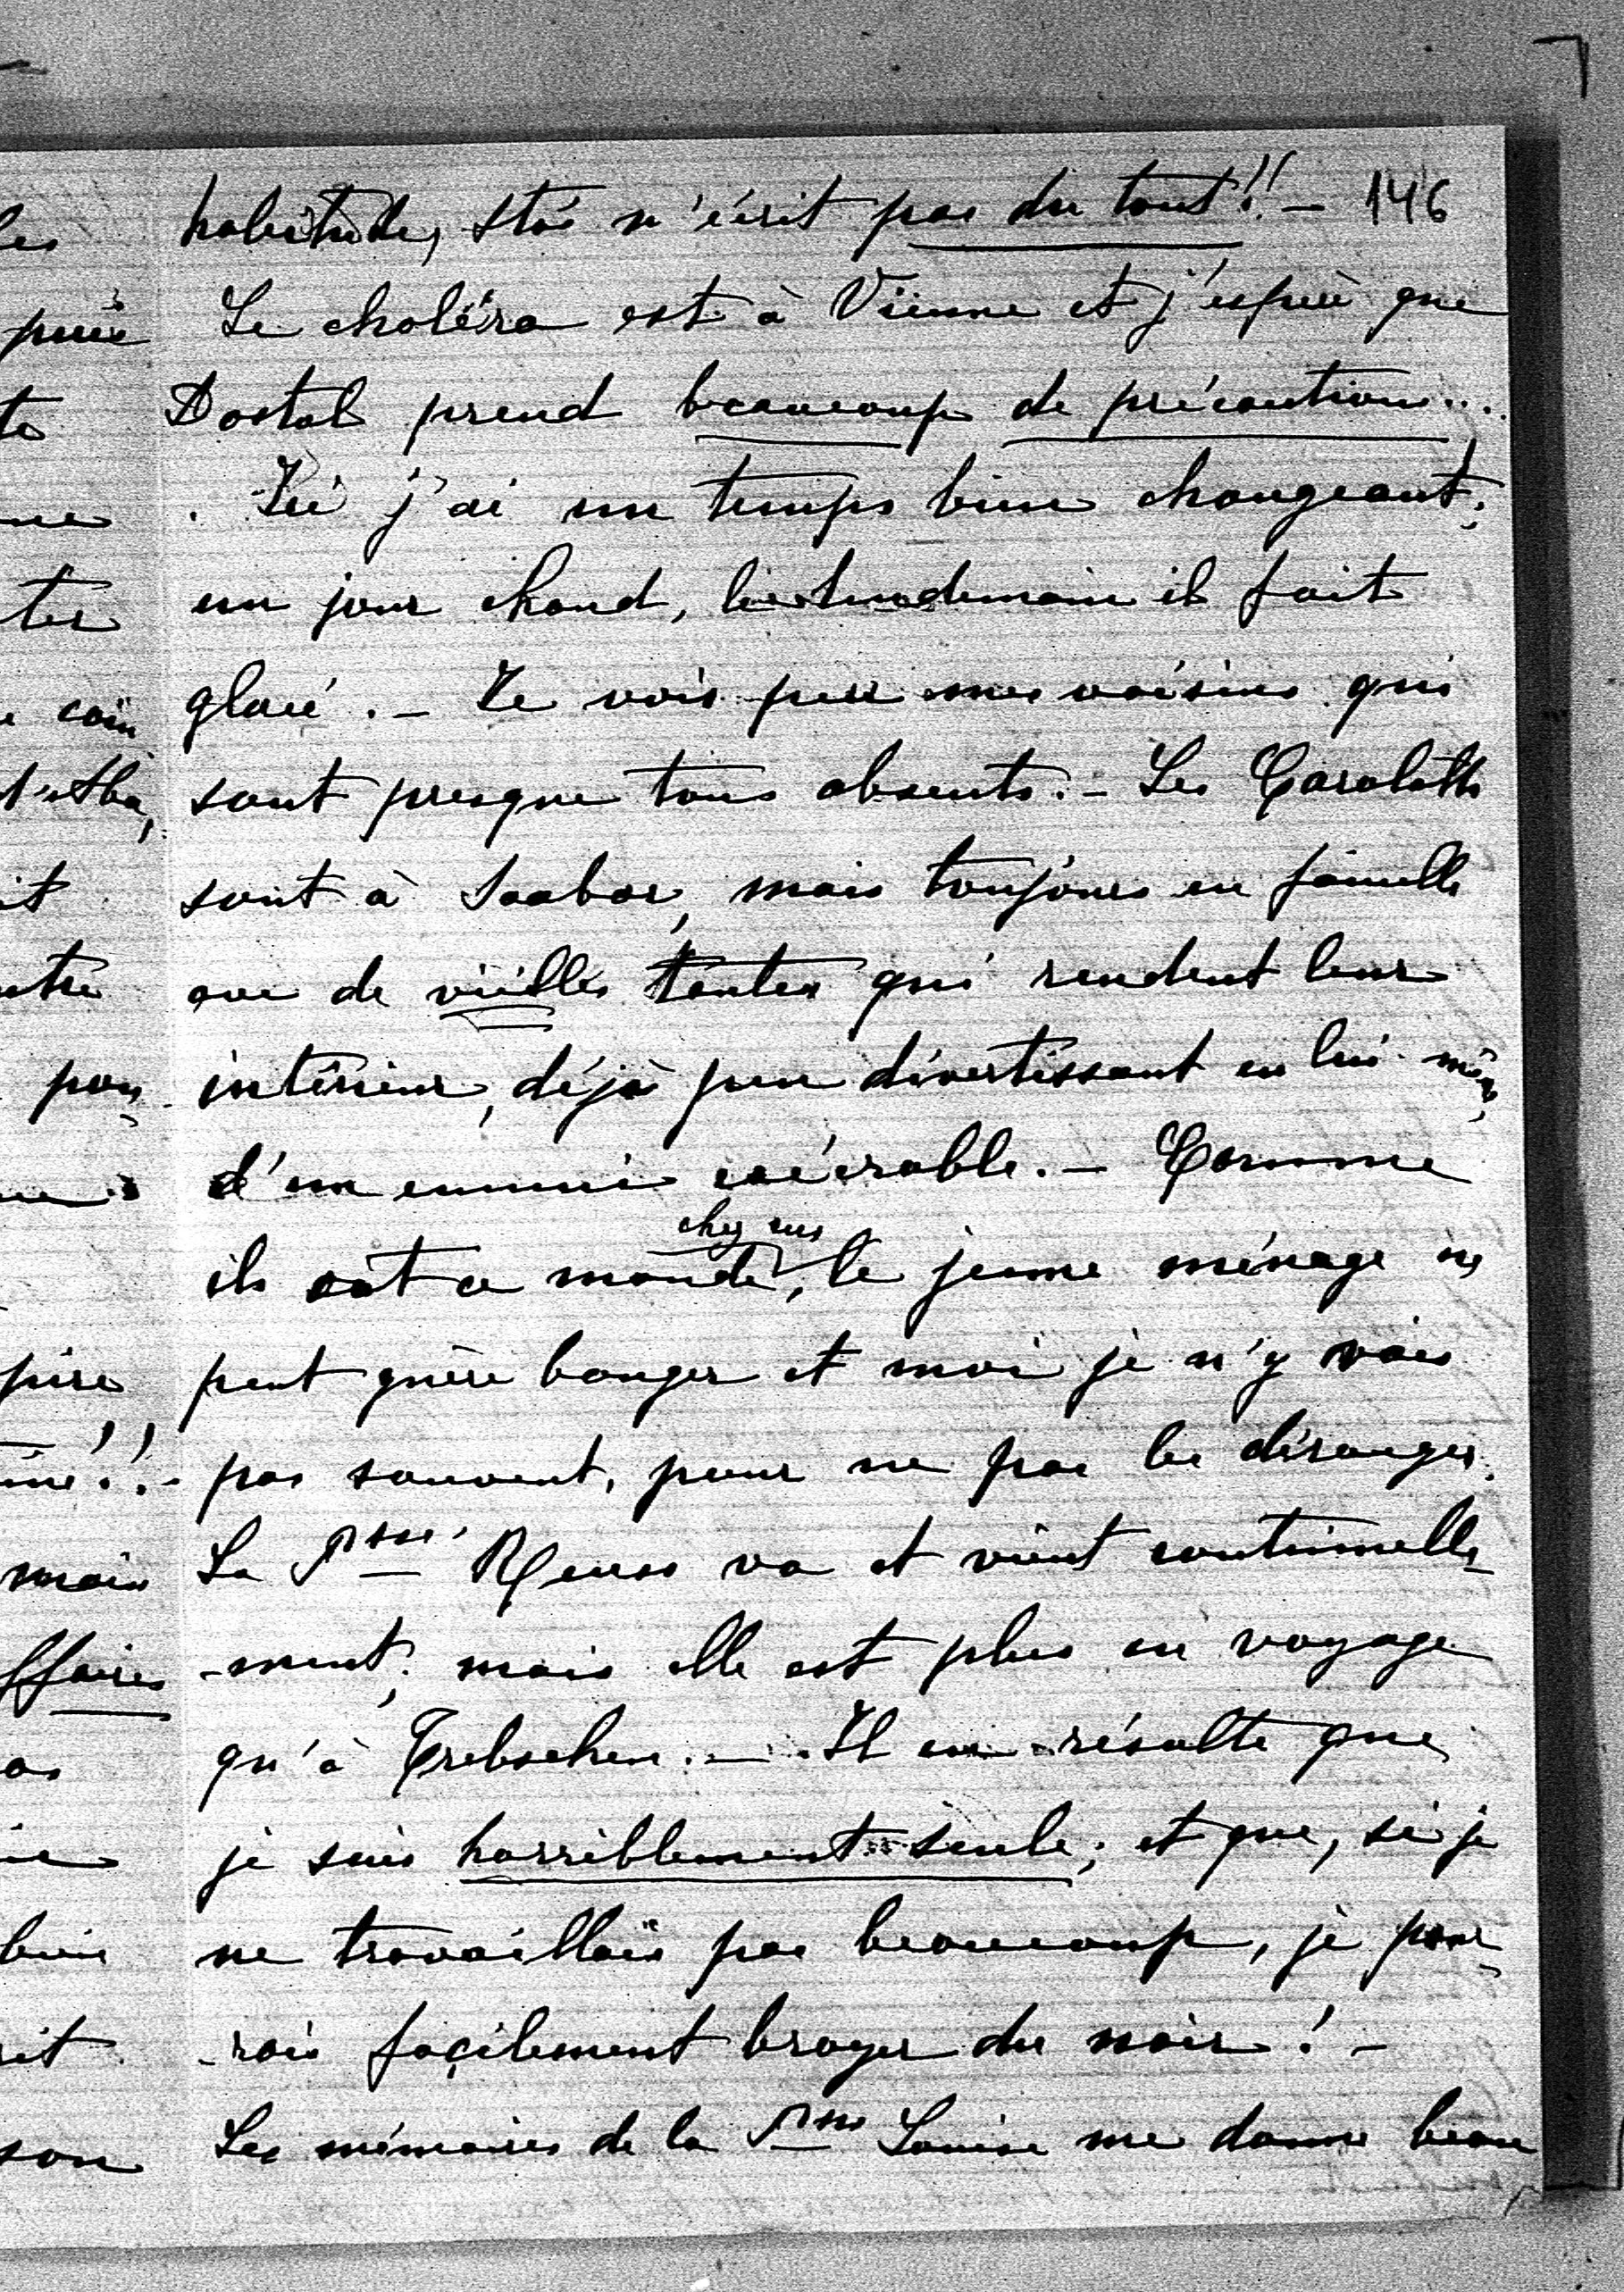 habitude, Stás n'écrit pas du tout!! — 146
Le choléra est à Vienne et j'espère que
Dostal prend beaucoup de précautions....
Ici j'ai un temps bien changeant;
un jour chaud, le lendemain il fait
glacé. — Je vois peu mes voisins qui
sont presque tous absents. — Les Carolath
sont à Saabor, mais toujours en famille
avec de vieilles tantes qui rendent leur
intérieur, déjà peu divertissant en lui-même,
d'un ennui exécrable. — Comme
ils ont ce monde chez eux, le jeune ménage ne
peut guère bouger et moi je n'y vais
pas souvent, pour ne pas les déranger.
La Psse Reuss va et vient continuelle-
-ment; mais elle est plus en voyage
qu'à Trebschen. — Il en résulte que
je suis horriblement seule; et que, si je
ne travaillais pas beaucoup, je pour-
-rais façilement broyer du noir! —
Les mémoires de la Psse Louise me donne beau
les
puis
te
ne
ter
coin
d'Aba,
it
utre
pour
pire
mais
ffaires
as
bien
rit
son